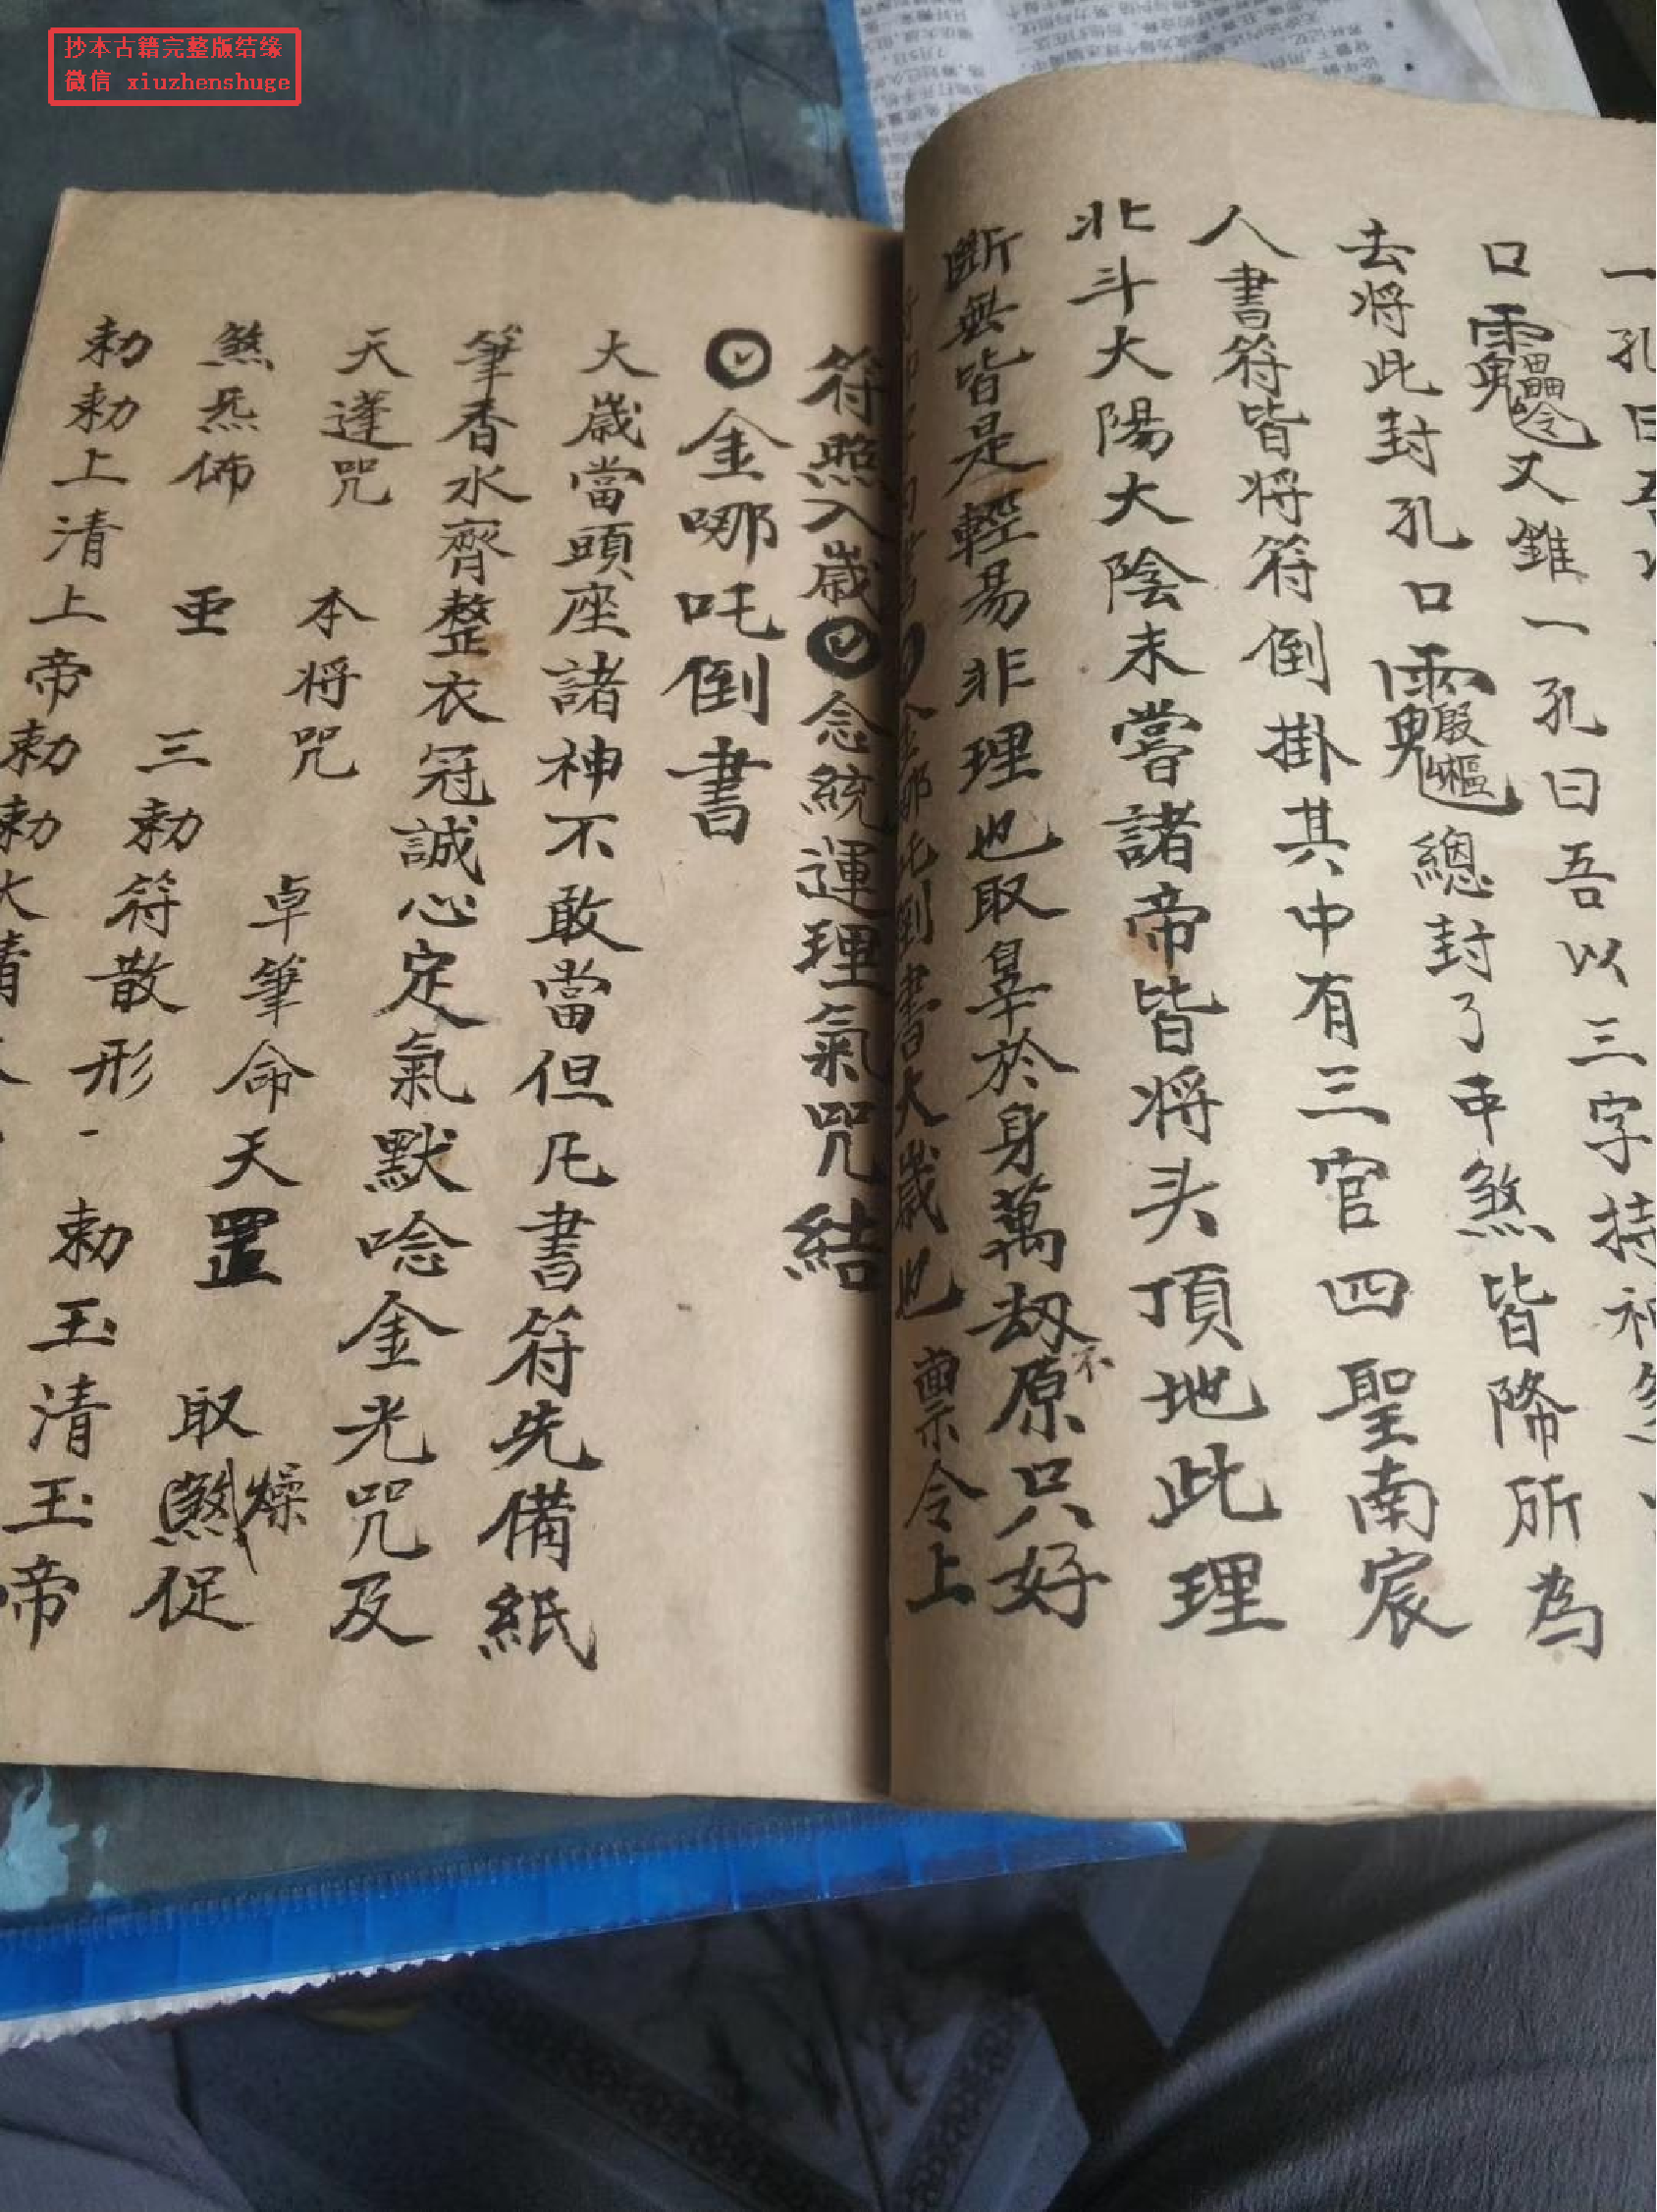 抄本古籍完整版结缘
微信 xiuzhenshuge
一孔曰吾以
口又錐一孔曰吾以三字持神煞
去將此封孔口總封了中煞皆降所為
人書符皆將符倒掛其中有三官四聖南宸
北斗大陽大陰未嘗諸帝皆將头頂地此理
斷無皆是輕易非理也取辠於身萬劫不原只好
金哪吒倒書大歲也 禀令上
符照入歲念統運理氣咒結
金哪吒倒書
大歲當頭座諸神不敢當但凡書符先備紙
筆香水齊整衣冠誠心定氣默唸金光咒及
天蓬咒 本將咒 卓筆命天罡 取燥促
煞炁佈 三勅符散形 勅玉清玉帝
勅勅上清上帝勅勅大清